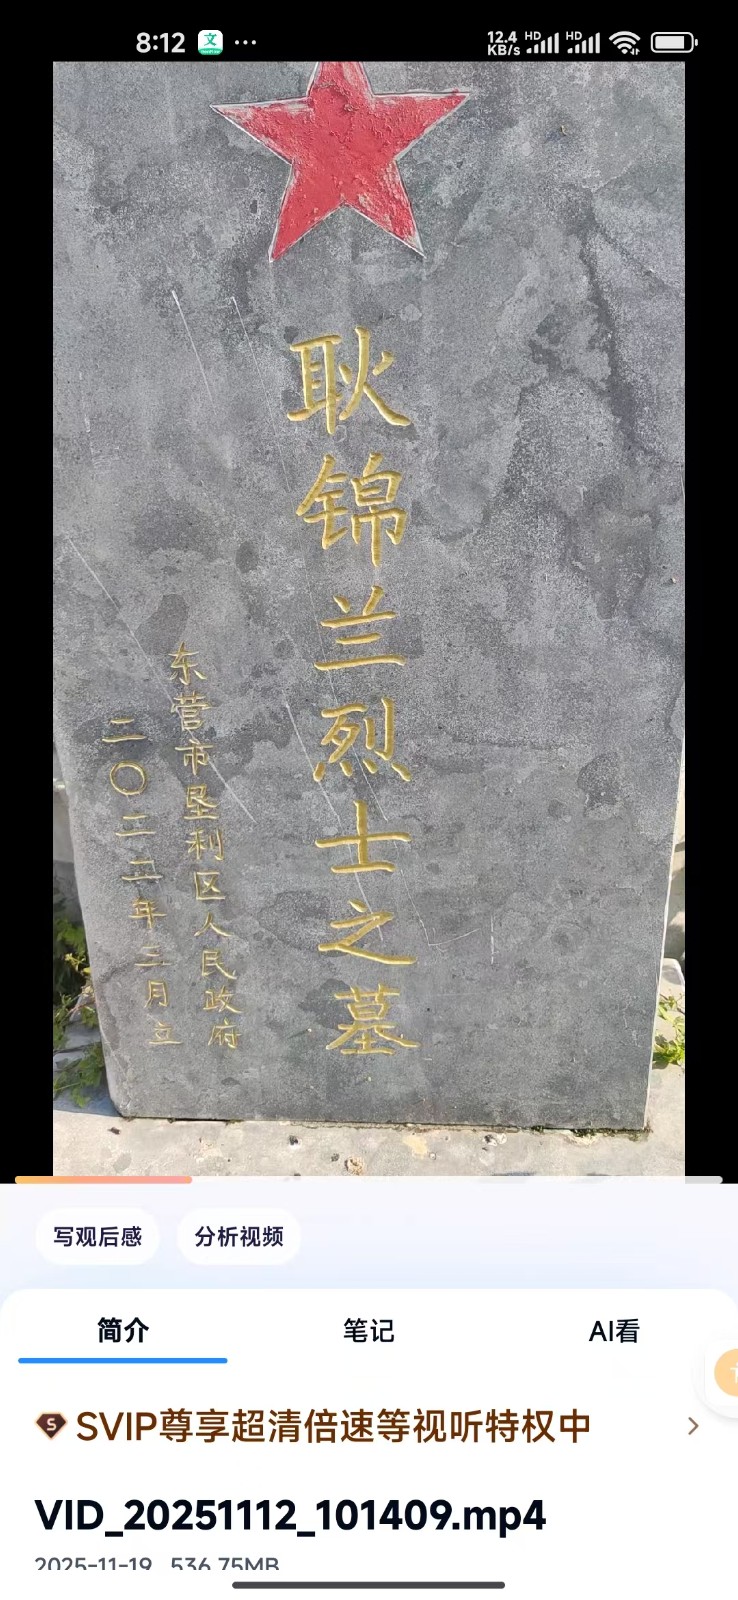 8:12
文
···
12.4
KB/s
HD
HD
耿锦兰烈士之墓
东营市垦利区人民政府
二〇二二年三月立
写观后感
分析视频
简介
笔记
AI看
S
SVIP尊享超清倍速等视听特权中
VID_20251112_101409.mp4
2025-11-19 536.75MB